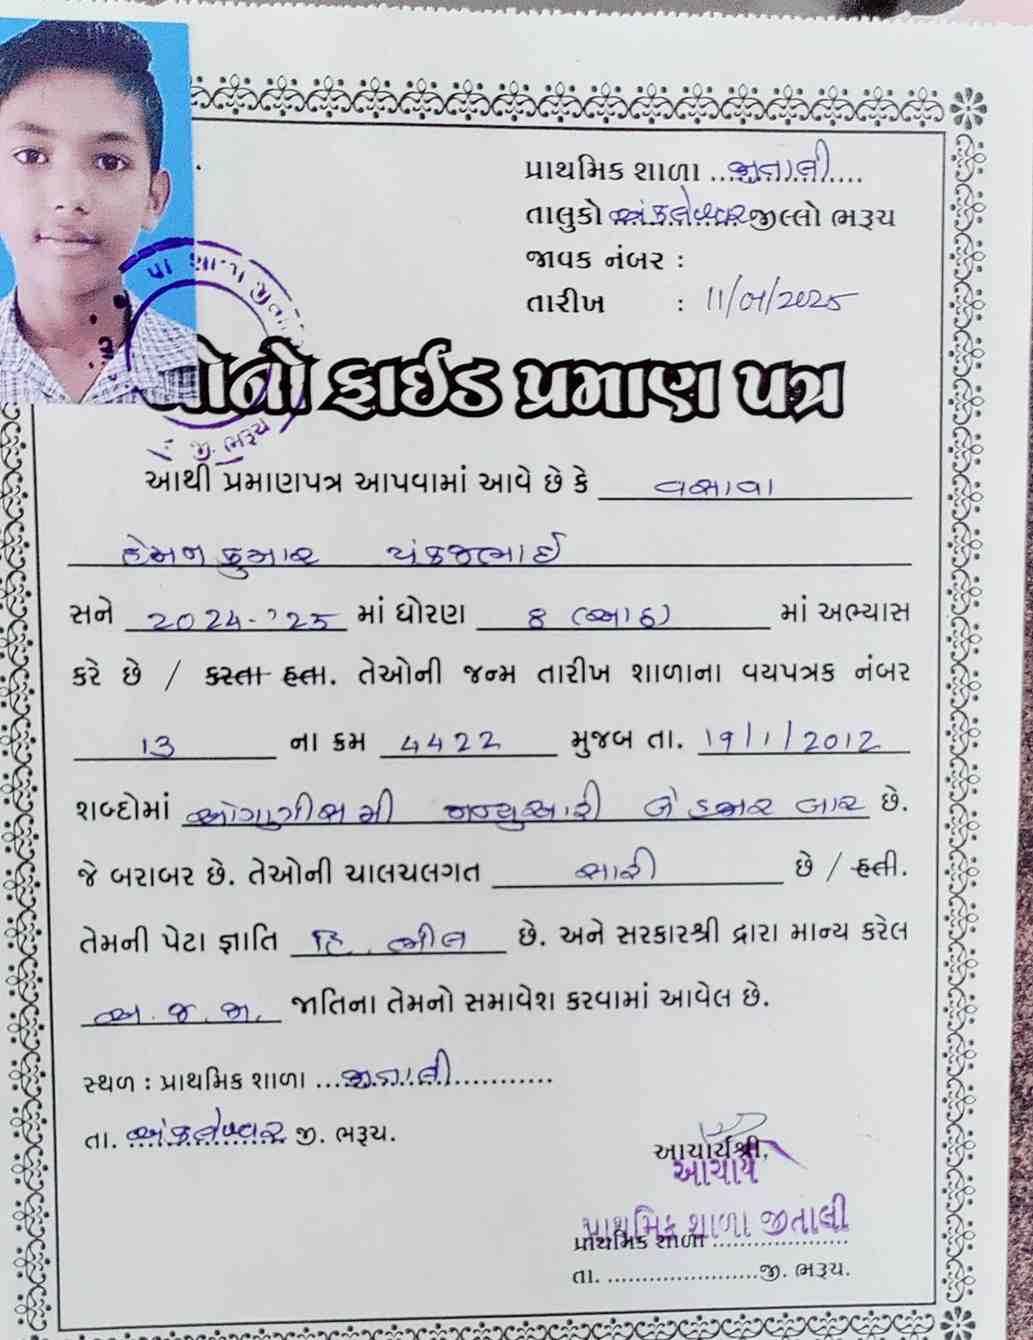 પ્રાથમિક શાળા ...જીતાલી....
તાલુકો અંકલેશ્વર જીલ્લો ભરૂચ
જાવક નંબર :
તારીખ : 11/01/2025
બોનોફાઈડ પ્રમાણ પત્ર
જી. ભરૂચ
આથી પ્રમાણપત્ર આપવામાં આવે છે કે વસાવા
હેમનકુમાર પંકજભાઈ
સને 2024-'25 માં ધોરણ 8 (આઠ) માં અભ્યાસ
કરે છે / કરતા હતા. તેઓની જન્મ તારીખ શાળાના વયપત્રક નંબર
13 ના ક્રમ 4422 મુજબ તા. 19/1/2012
શબ્દોમાં ઓગણીસમી જાન્યુઆરી બે હજાર બાર છે.
જે બરાબર છે. તેઓની ચાલચલગત સારી છે / હતી.
તેમની પેટા જ્ઞાતિ હિ. ભીલ છે. અને સરકારશ્રી દ્રારા માન્ય કરેલ
અ.જ.જા. જાતિના તેમનો સમાવેશ કરવામાં આવેલ છે.
સ્થળ : પ્રાથમિક શાળા ...જીતાલી...........
તા. અંકલેશ્વર જી. ભરૂચ.
આચાર્યશ્રી,
આચાર્ય
પ્રાથમિક શાળા જીતાલી
પ્રાથમિક શાળા ....................
તા. ......................જી. ભરૂચ.